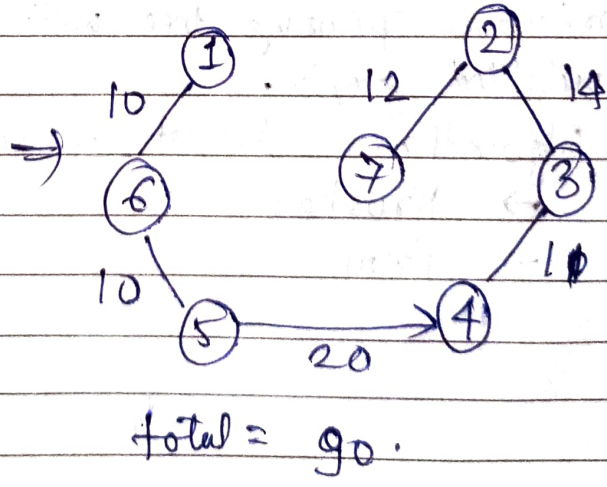 1
2
10
12
14
⇒
6
7
3
10
5
20
4
total = 90.